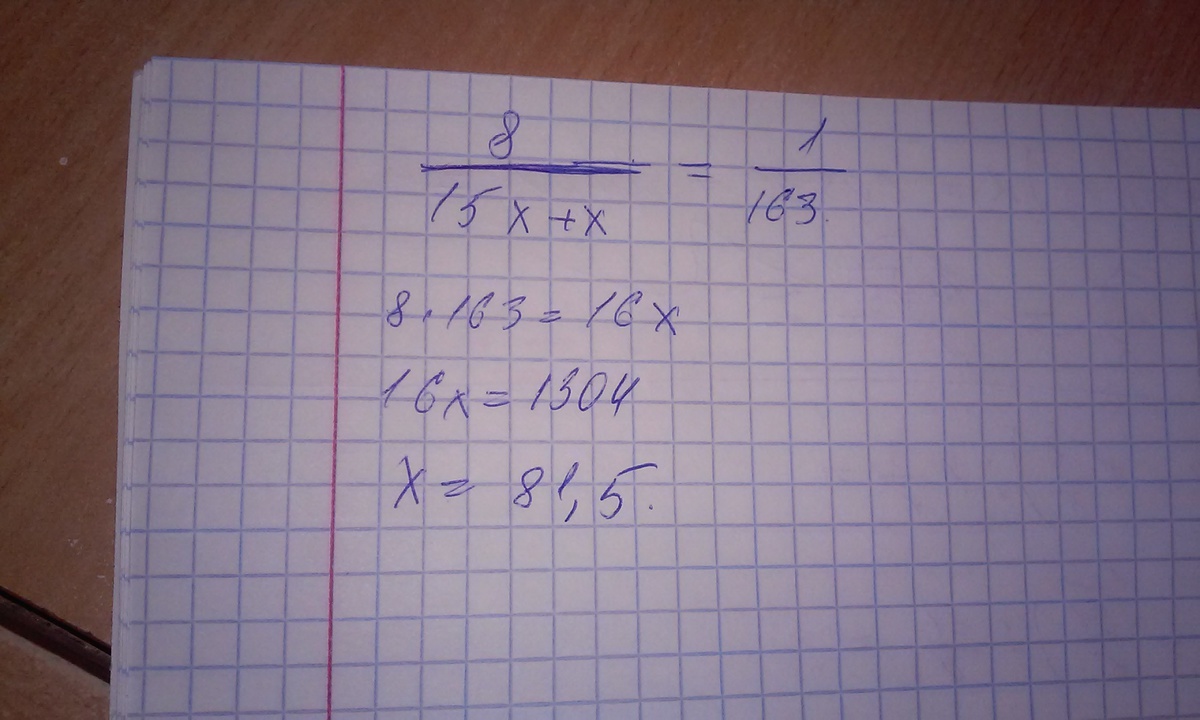 8 / 15x+x = 1 / 163.
8·163=16x
16x=1304
x= 81,5.